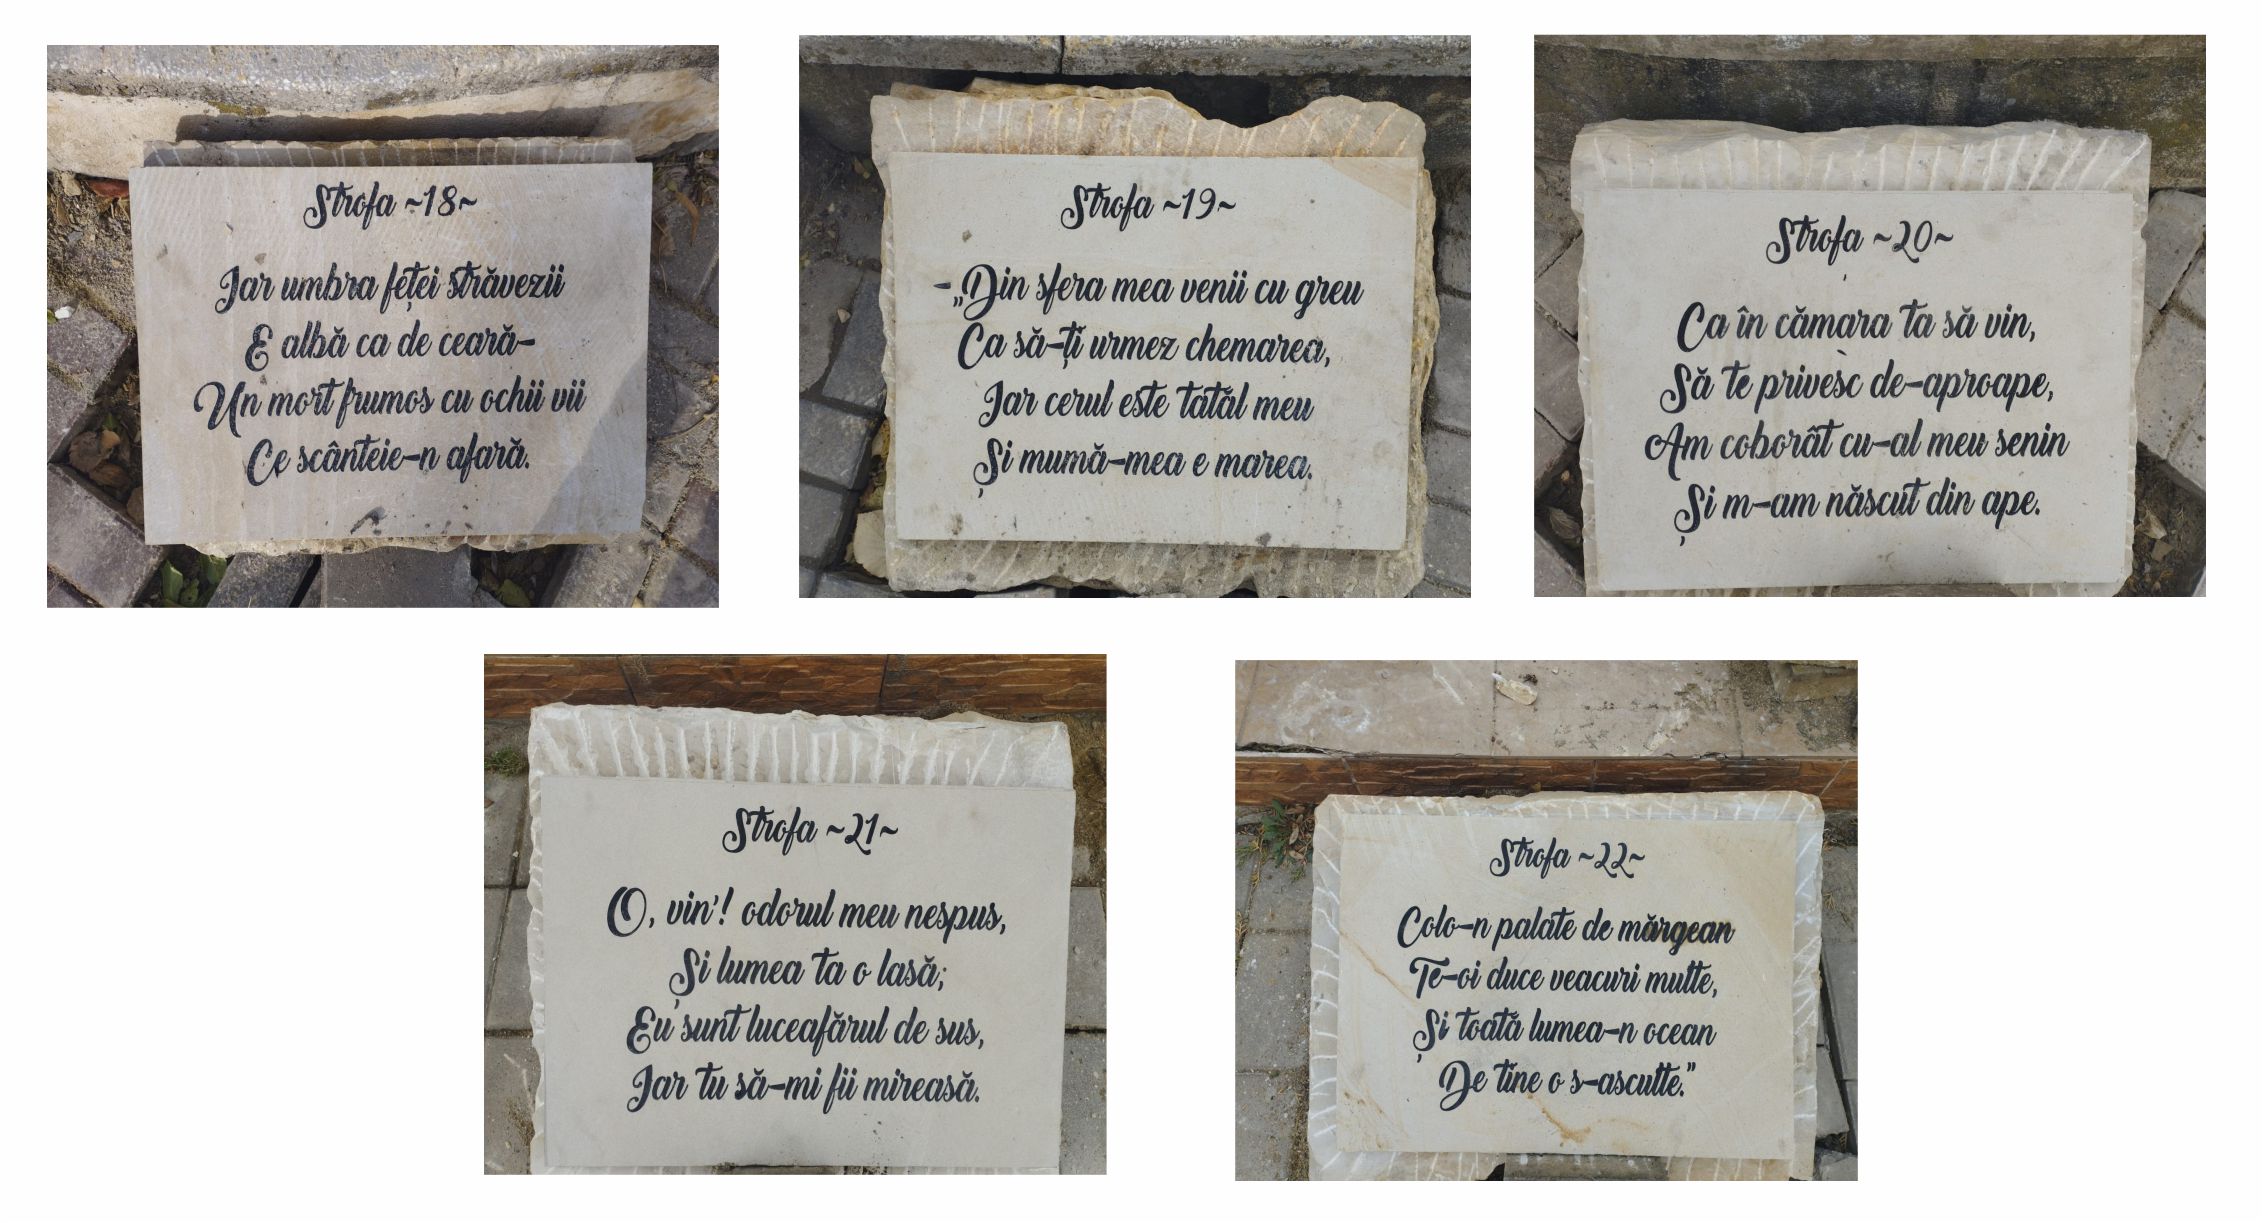 Strofa ~18~
Iar umbra feței străvezii
E albă ca de ceară-
Un mort frumos cu ochii vii
Ce scânteie-n afară.
Strofa ~19~
-„Din sfera mea venii cu greu
Ca să-ți urmez chemarea,
Iar cerul este tatăl meu
Și mumă-mea e marea.
Strofa ~20~
Ca în cămara ta să vin,
Să te privesc de-aproape,
Am coborât cu-al meu senin
Și m-am născut din ape.
Strofa ~21~
O, vin'! odorul meu nespus,
Și lumea ta o lasă;
Eu sunt luceafărul de sus,
Iar tu să-mi fii mireasă.
Strofa ~22~
Colo-n palate de mărgean
Te-oi duce veacuri multe,
Și toată lumea-n ocean
De tine o s-asculte."